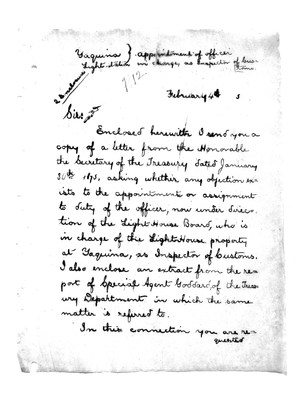 Yaquina } appointment of officer
Light-station in charge, as Inspector of Cus-
toms.
2 Enclosures
712
February 4th 5
Sir:
Enclosed herewith I send you a
copy of a letter from the Honorable
the Secretary of the Treasury dated January
30th 1875, asking whether any objection ex-
ists to the appointment or assignment
to duty of the officer, now under direc-
tion of the Light-House Board, who is
in charge of the Light-House property
at Yaquina, as Inspector of Customs.
I also enclose an extract from the re-
port of Special Agent Goddard, of the Treas-
ury Department in which the same
matter is referred to.
In this connection you are re-
quested